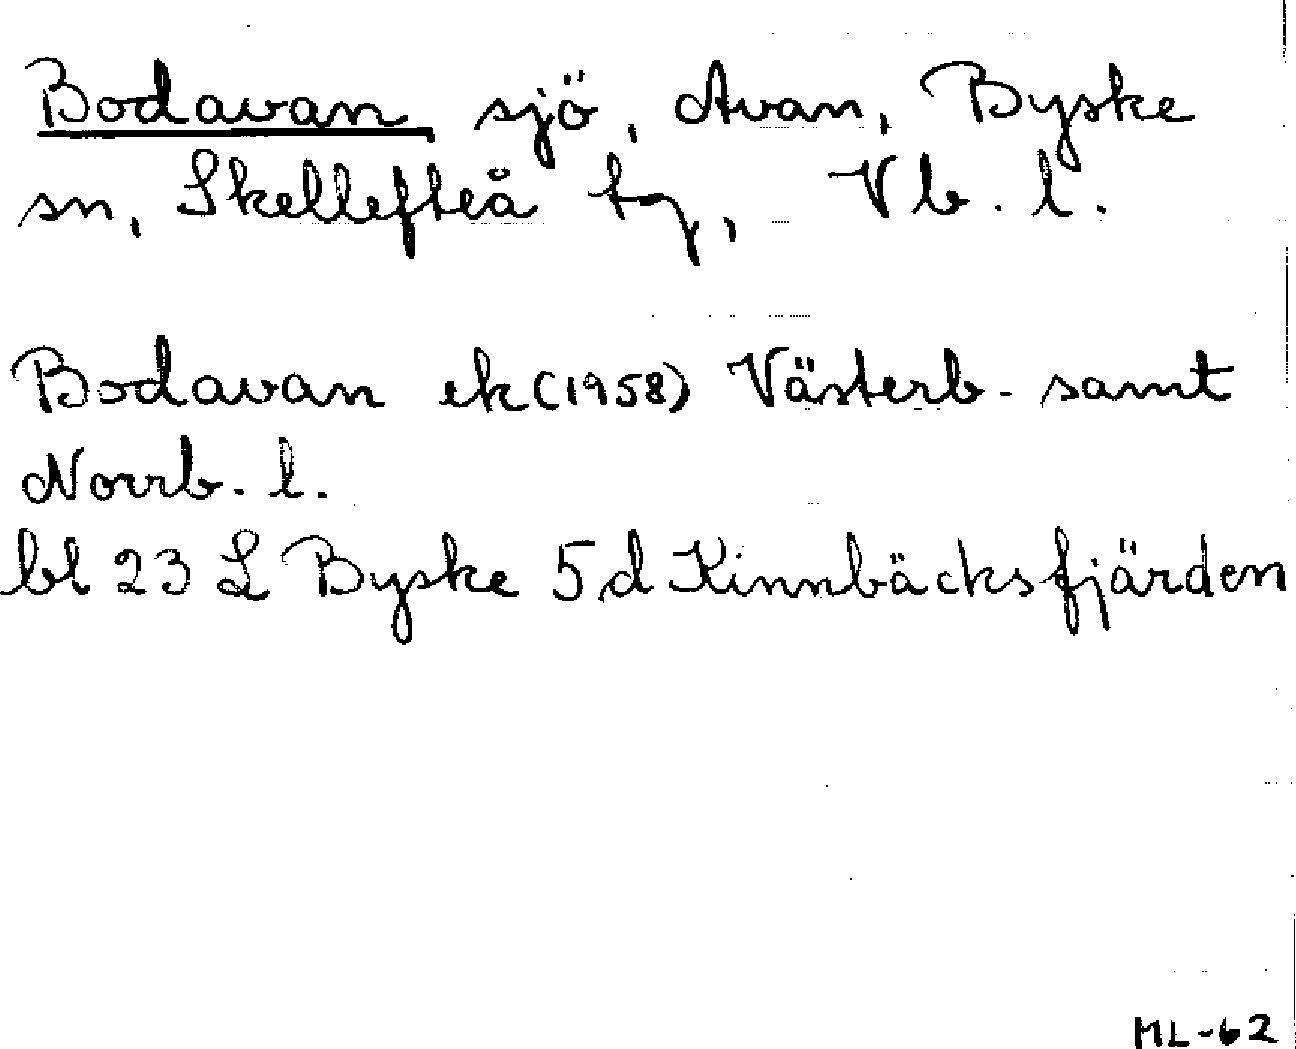 Bodavan sjö, Avan, Byske
sn, Skellefteå tg, Vb. l.
Bodavan ek (1958) Västerb- samt
Norrb. l.
bl 23 L Byske 5 d Kinnbäcksfjärden
ML-62